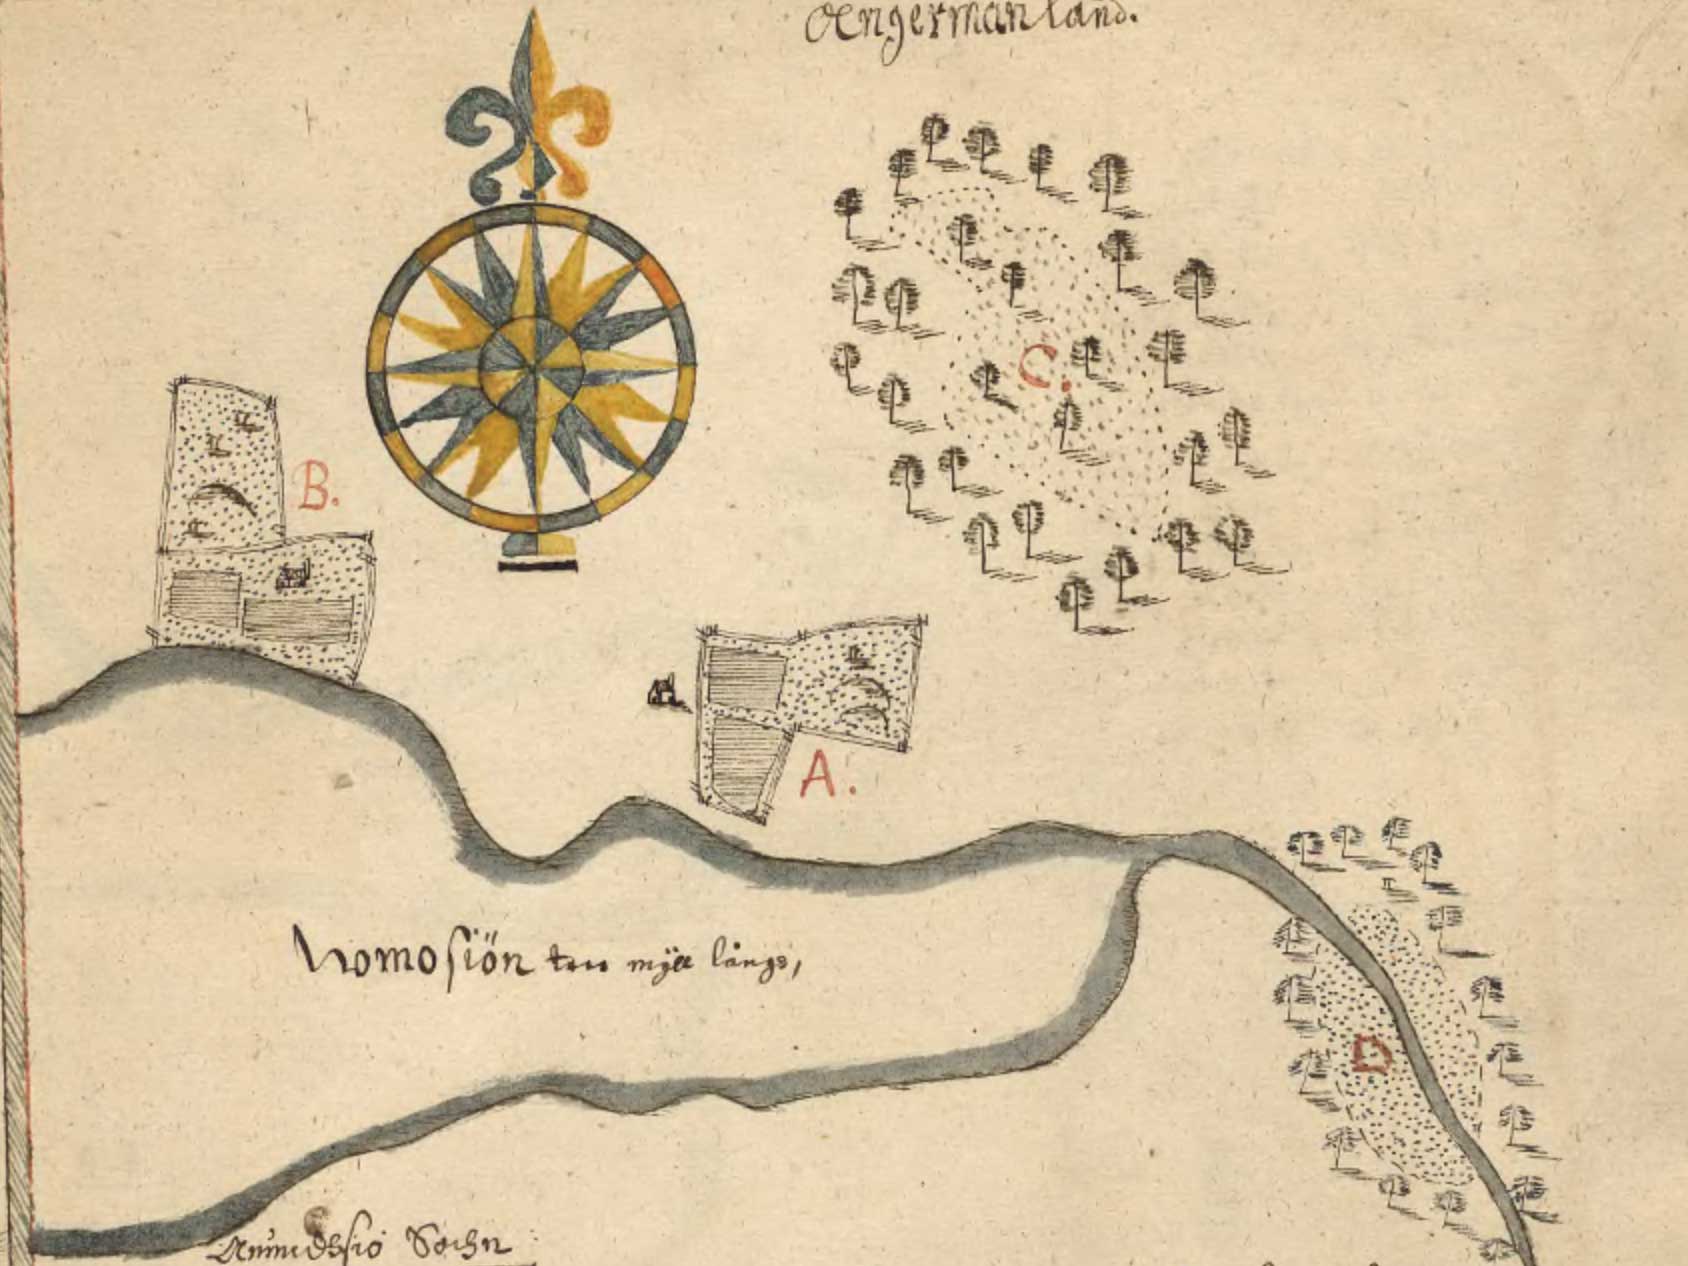 Ångermanland.
C.
B.
A.
Nomosiön twå mijl långs,
D
Anundhsiö Sochn